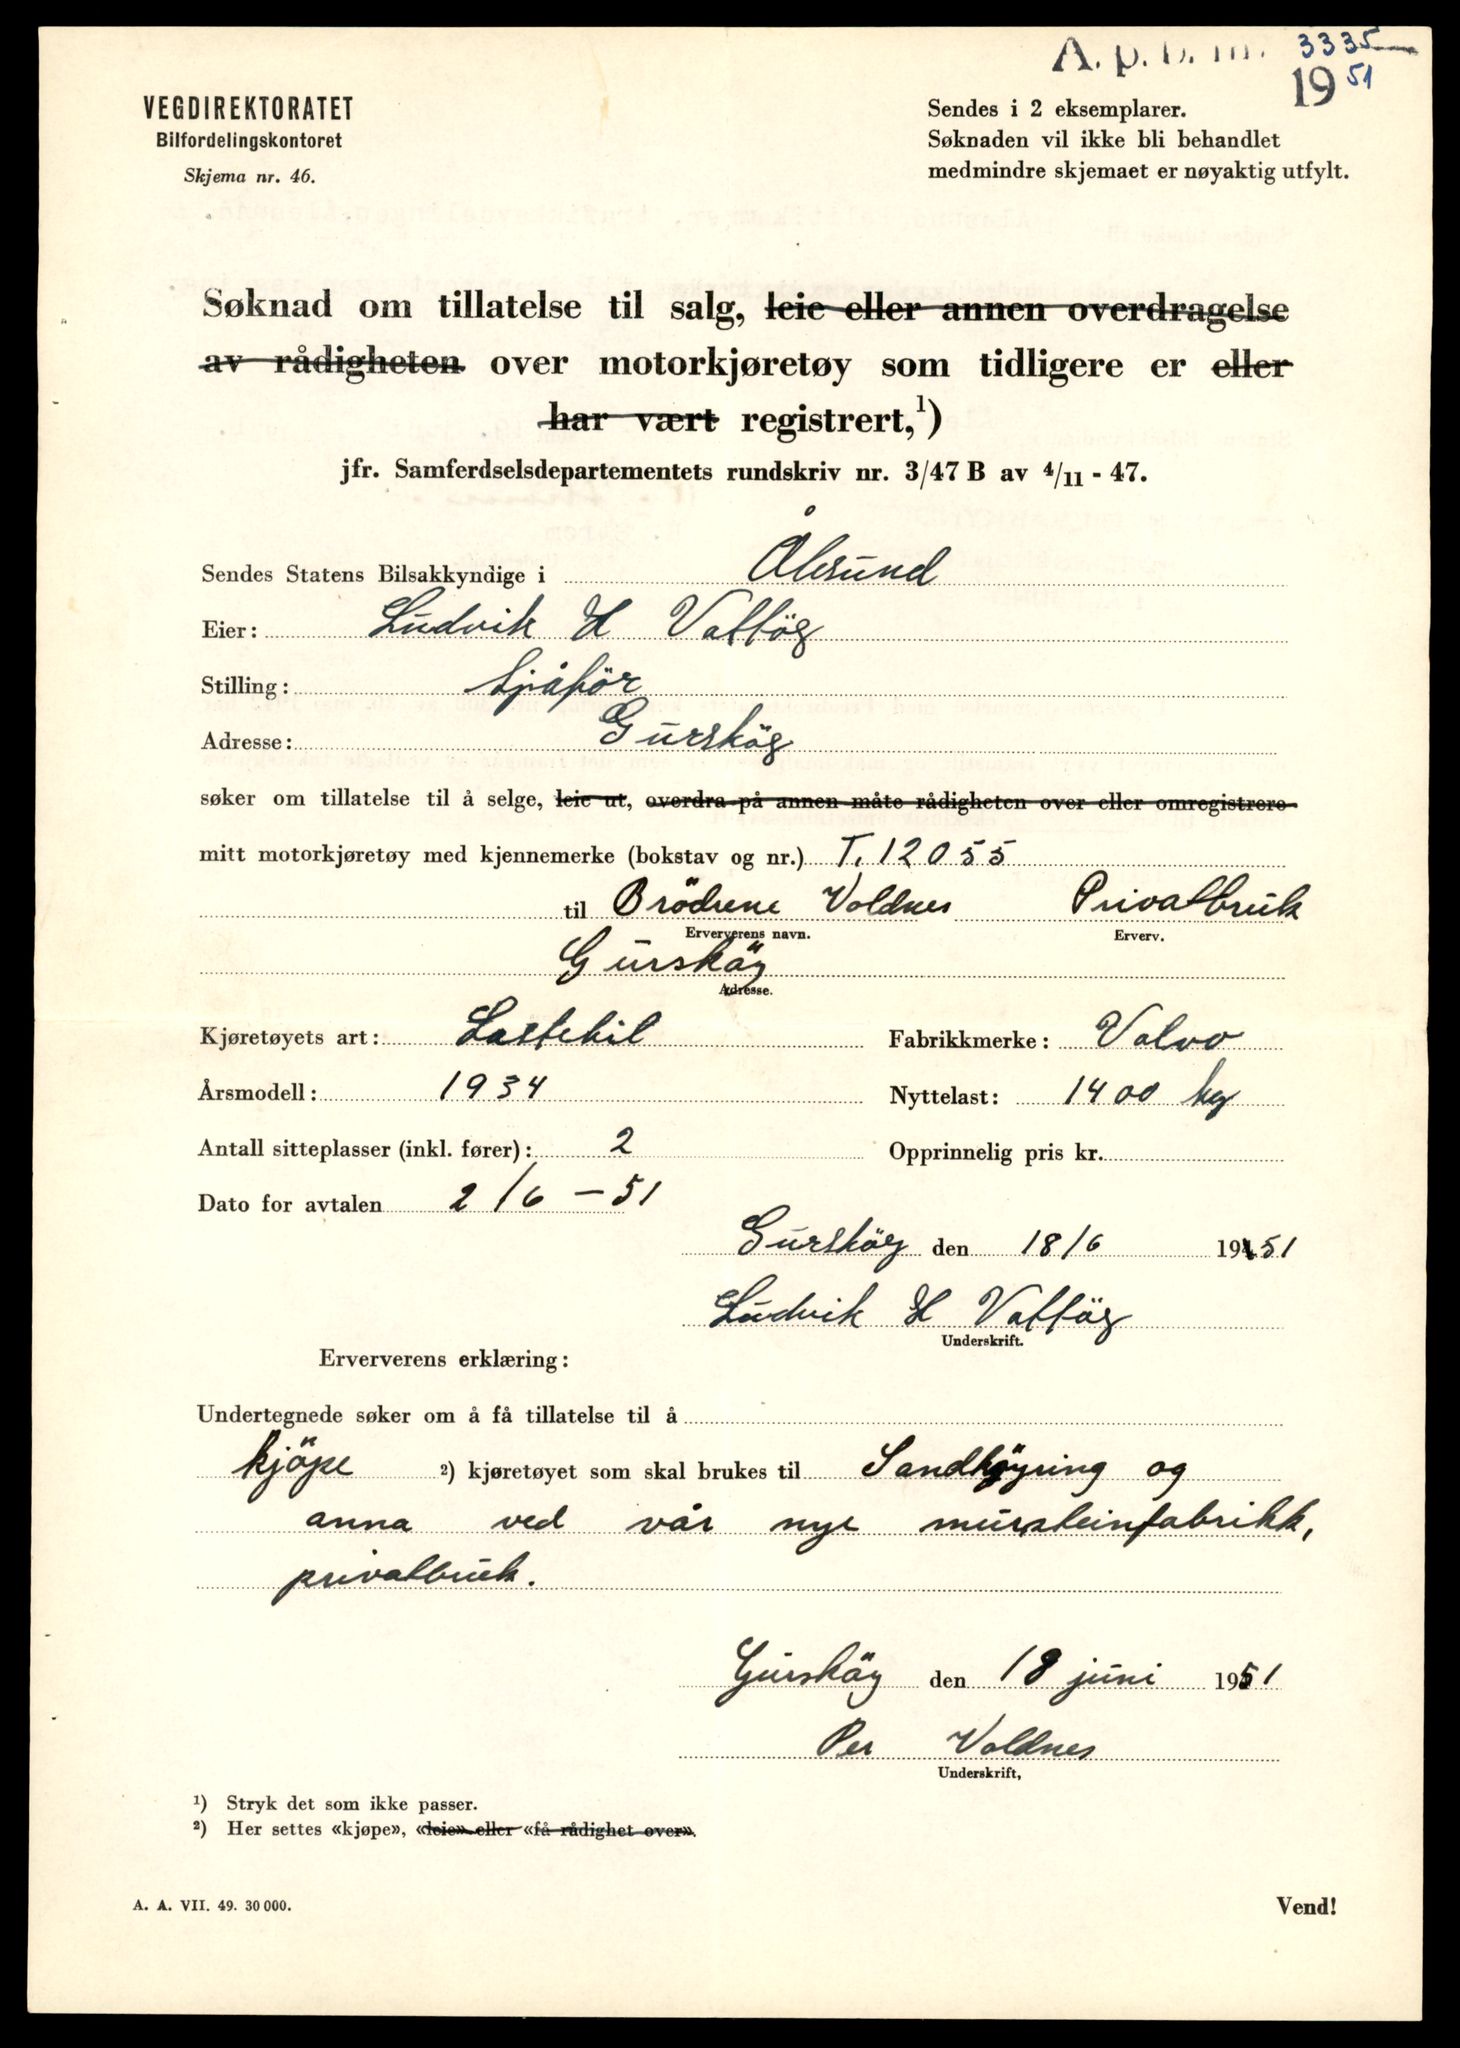 A. p. b. nr. 3335
1951
VEGDIREKTORATET
Bilfordelingskontoret
Skjema nr. 46.
Sendes i 2 eksemplarer.
Søknaden vil ikke bli behandlet
medmindre skjemaet er nøyaktig utfylt.
Søknad om tillatelse til salg, leie eller annen overdragelse
av rådigheten over motorkjøretøy som tidligere er eller
har vært registrert,¹)
jfr. Samferdselsdepartementets rundskriv nr. 3/47 B av 4/11 - 47.
Sendes Statens Bilsakkyndige i Ålesund
Eier: Ludvik H Vattöy
Stilling: Sjåför
Adresse: Gursköy
søker om tillatelse til å selge, leie ut, overdra på annen måte rådigheten over eller omregistrere
mitt motorkjøretøy med kjennemerke (bokstav og nr.) T. 12055
til Brödrene Voldnes Privatbruk
Erververens navn. Erverv.
Gursköy
Adresse.
Kjøretøyets art: Lastebil Fabrikkmerke: Volvo
Årsmodell: 1934 Nyttelast: 1400 kg
Antall sitteplasser (inkl. fører): 2 Opprinnelig pris kr.
Dato for avtalen 2/6 - 51
Gursköy den 18/6 1951
Ludvik H Vattöy
Underskrift.
Erververens erklæring:
Undertegnede søker om å få tillatelse til å
kjöpe ²) kjøretøyet som skal brukes til Sandkjöyring og
anna ved vår nye mursteinfabrikk,
privatbruk.
Gursköy den 18 juni 1951
Per Voldnes
Underskrift,
¹) Stryk det som ikke passer.
²) Her settes «kjøpe», «leie» eller «få rådighet over».
A. A. VII. 49. 30 000.
Vend!